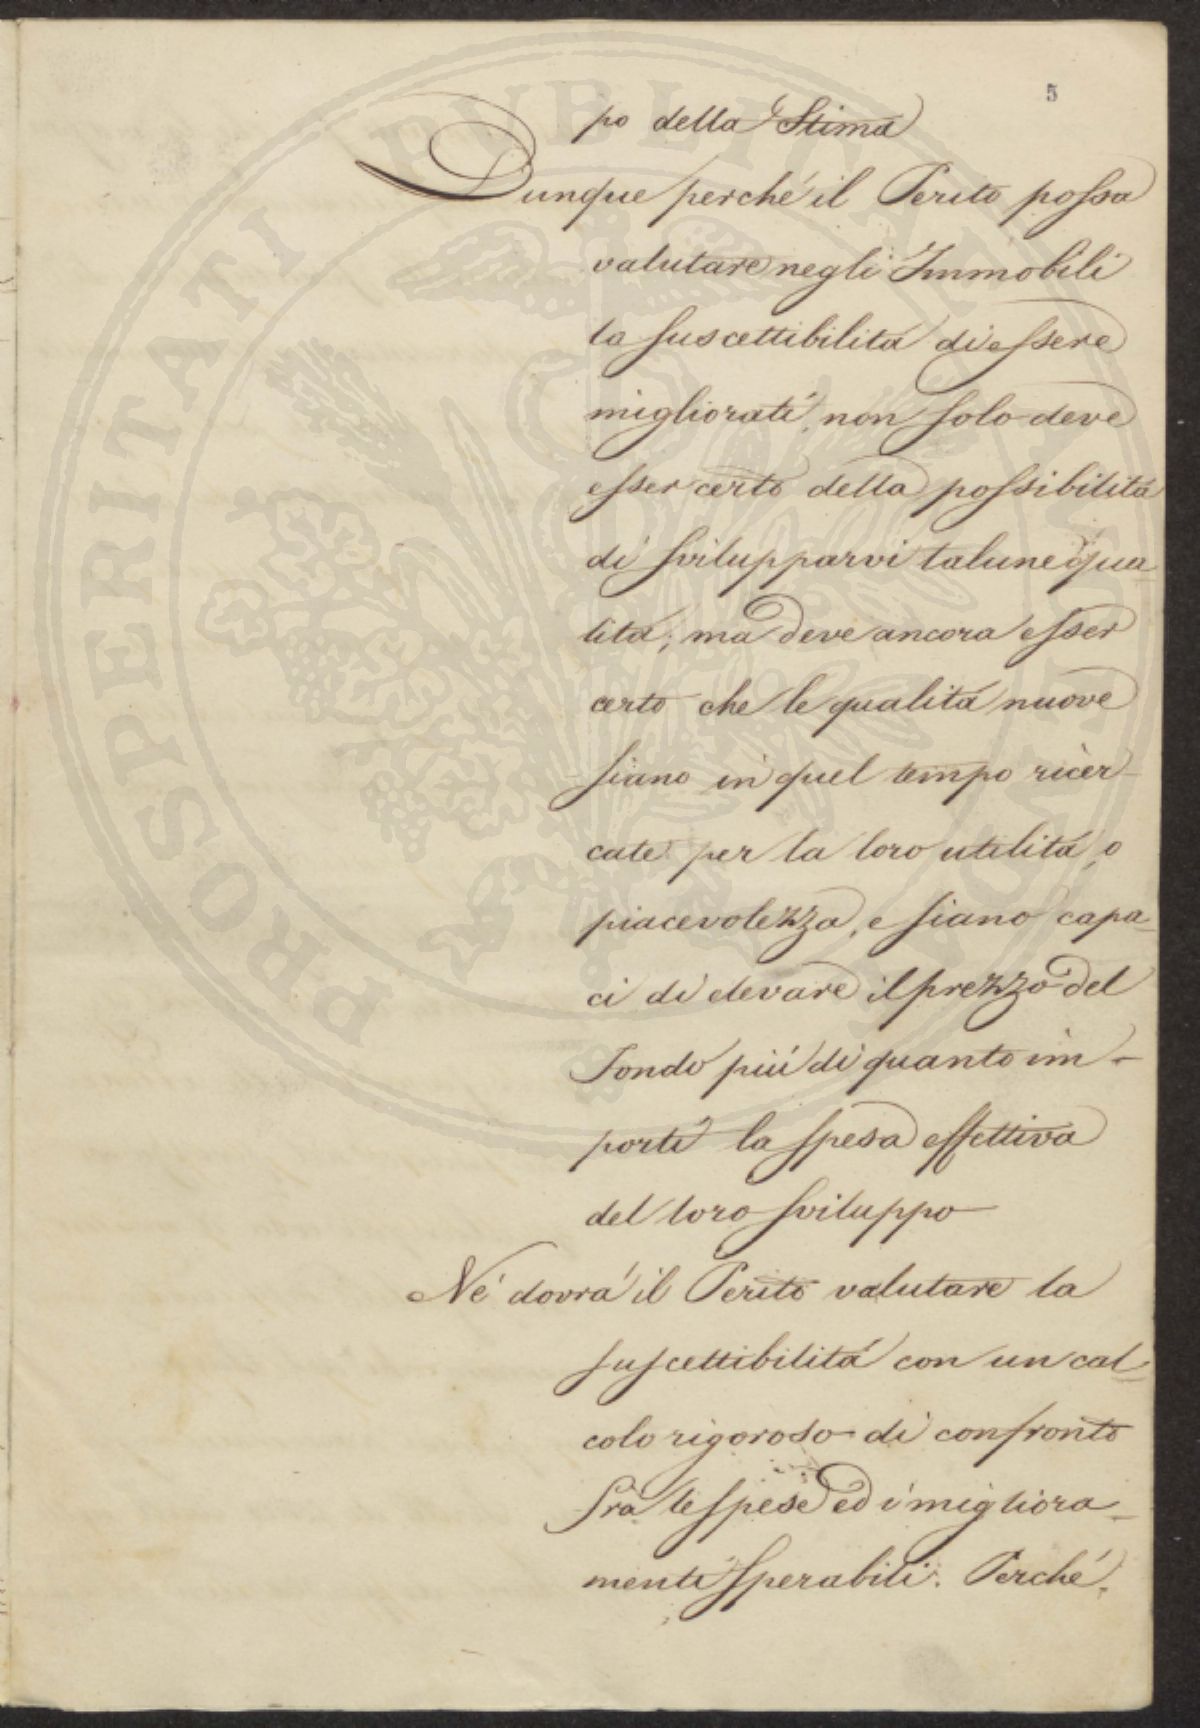 5
po della Stima
Dunque perché il Perito possa
valutare negli Immobili
la suscettibilitá di essere
migliorati, non solo deve
esser certo della possibilitá
di svilupparvi talune qua-
litá; ma deve ancora esser
certo che le qualitá nuove
siano in quel tempo ricer-
cate per la loro utilitá, o
piacevolezza, e siano capa-
ci di elevare il prezzo del
Fondo piú di quanto im-
porti la spesa effettiva
del loro sviluppo
Né dovrá il Perito valutare la
suscettibilitá con un cal-
colo rigoroso di confronto
fra le spese ed i migliora-
menti sperabili. Perché
PROSPERITATI PUBLICAE